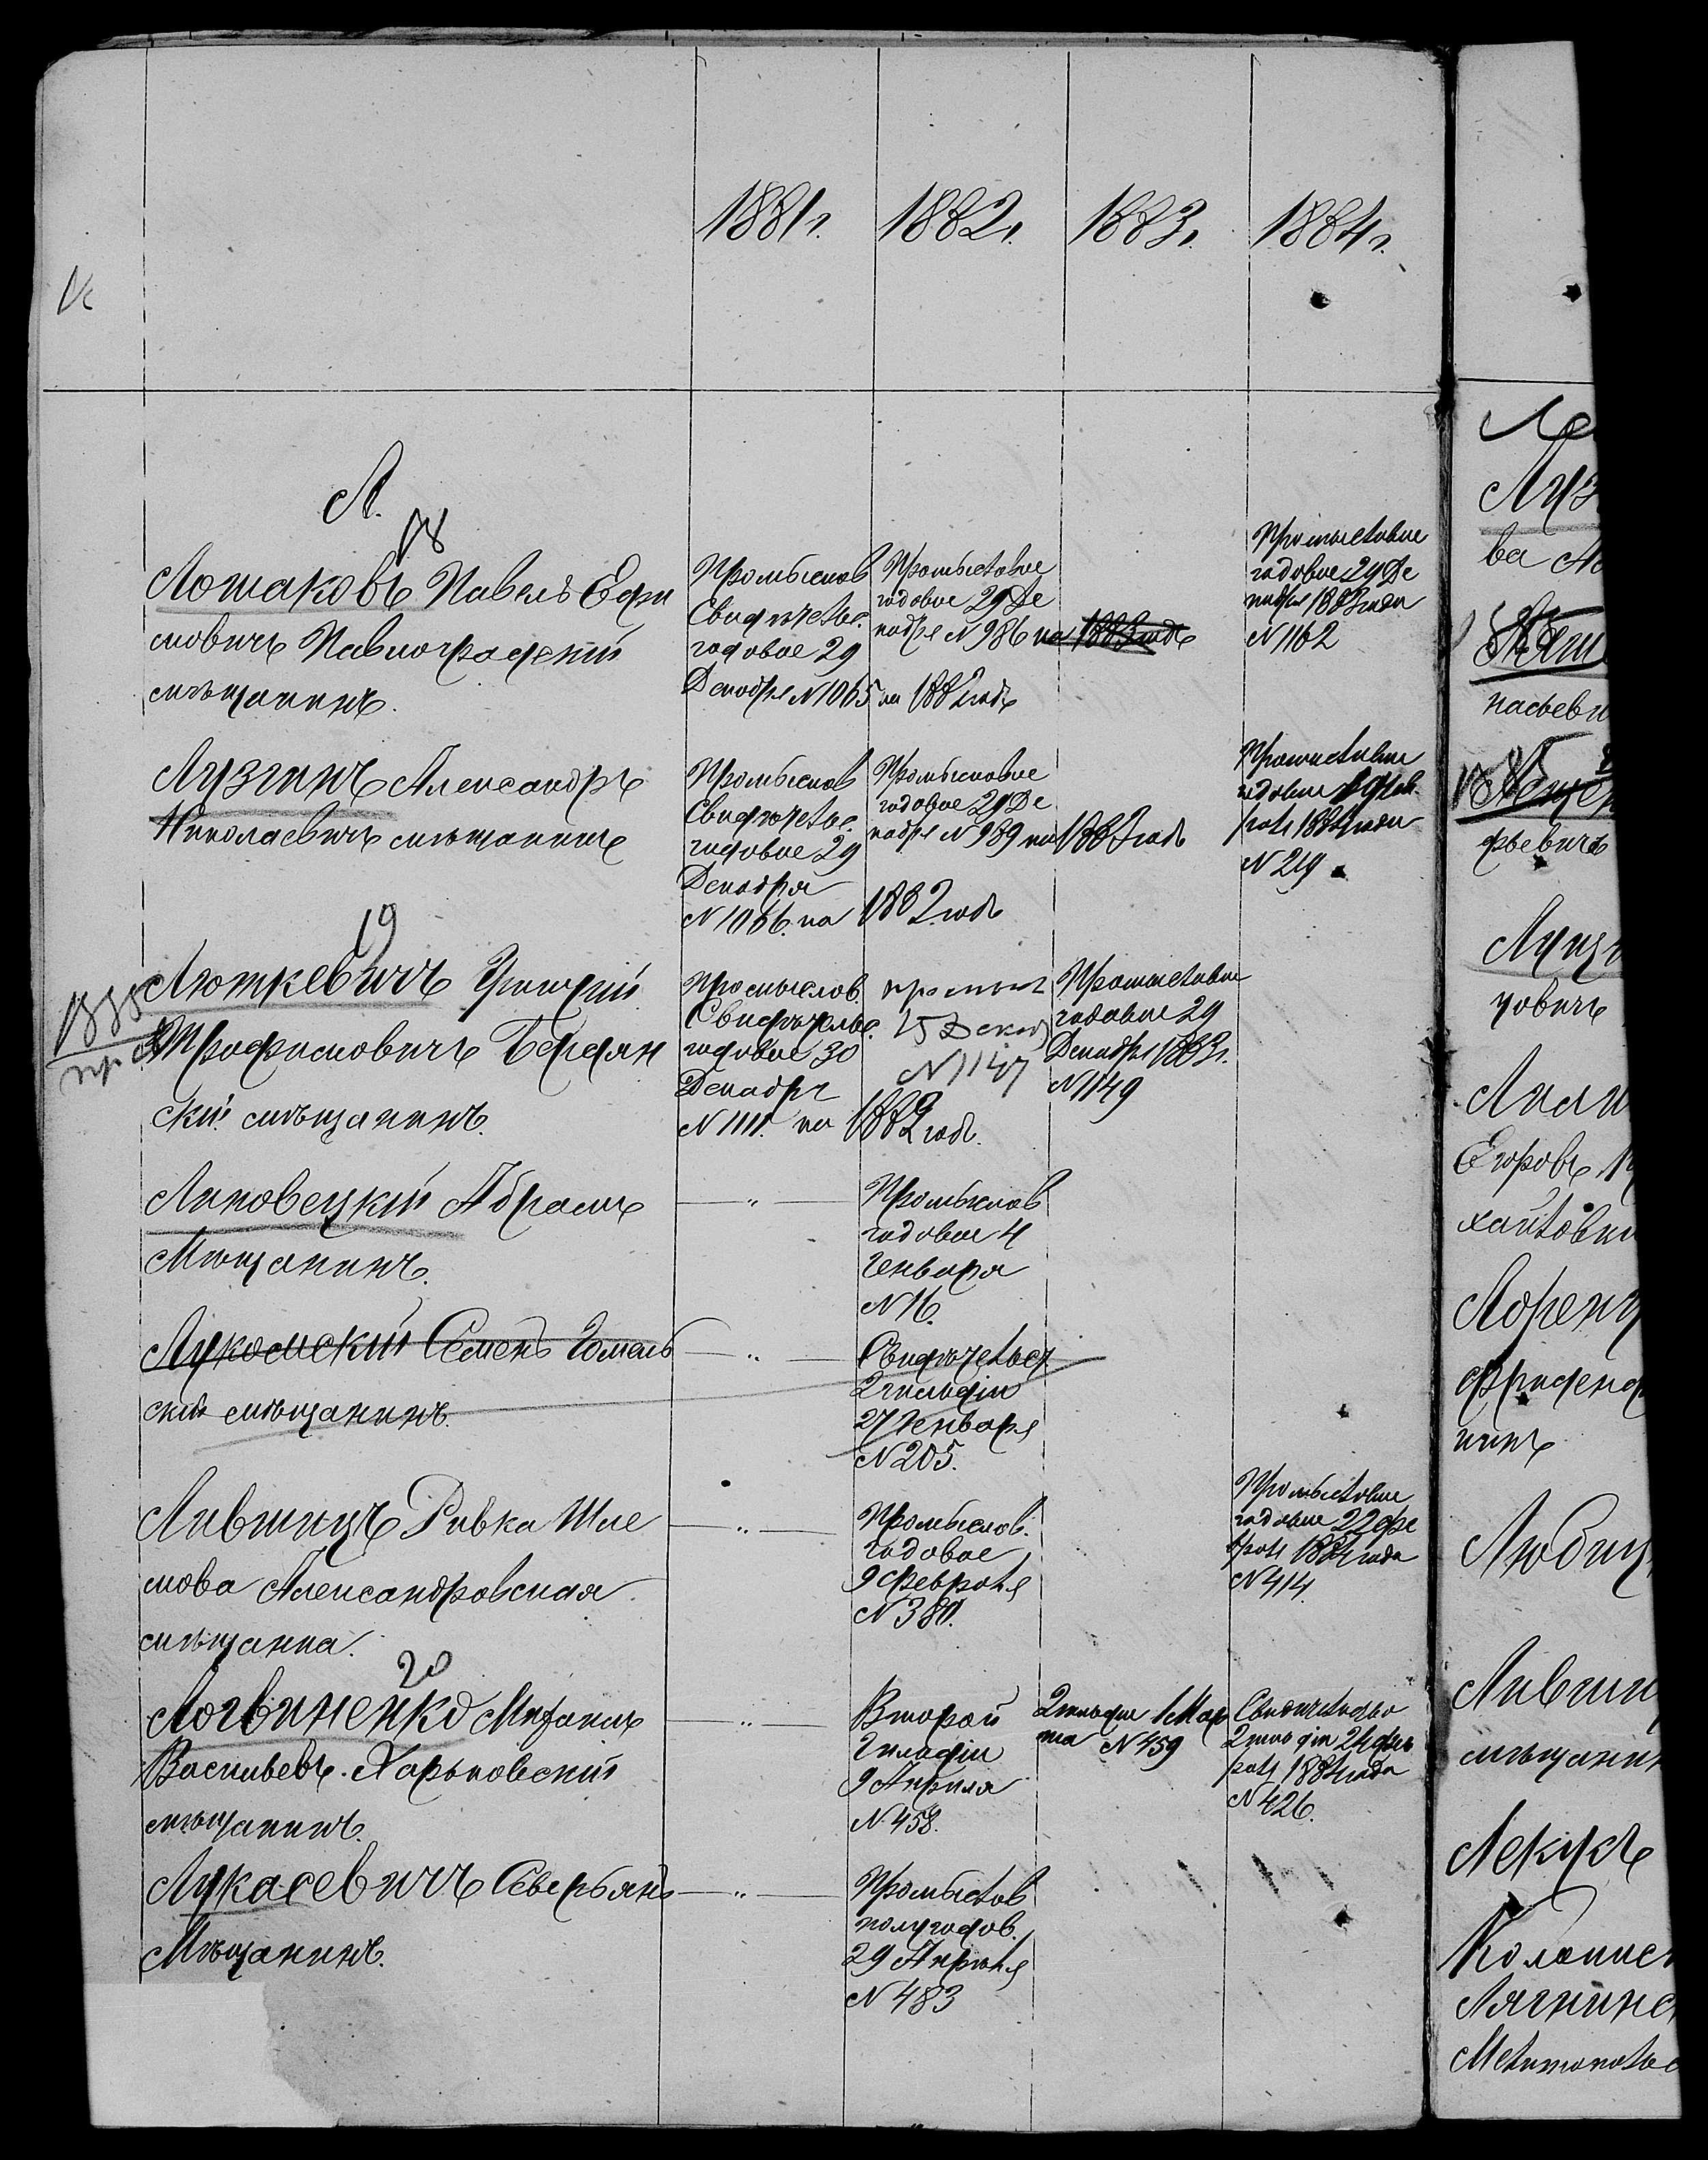 1881г. 1882г. 1883г. 1884г.
Л.
18
Лошаковъ Павелъ Ефи
мовичъ Павлоградскій
мѣщанинъ.
Промыслов
Свидѣтель.
годовое 29
Декабря N 1065 на 1882 годъ
Промысловое
годовое 29 Де
кабря N 986 на 1883 годъ
Промысловое
годовое 29 Де
кабря 1883 года
N 1162
Лузгинъ Александръ
Николаевичъ мѣщанинъ
Промыслов
Свидѣтель.
годовое 29
Декабря
N 1066. на 1882 годъ
Промысловое
годовое 29 Де
кабря N 989 на 1883 годъ
Промысловое
годовое
раля 1884 года
N 219
19
1885
Люткевичъ Григорій
Трофимовичъ Бердян
скій мѣщанинъ.
Промыслов.
Свидѣтель.
годовое 30
Декабря
N 1111. на 1882 годъ.
промысл
15 Декаб
N 1147
Промысловое
годовое 29
Декабря 1883г.
N 1149
Липовецкій Абрамъ
Мѣщанинъ.
— " —
Промыслов
годовое 4
Генваря
N 16.
Лукомскій Семенъ Гомель
скій мѣщанинъ.
— " —
Свидѣтельст
2 гильдіи
27 Генваря
N 205.
Лившицъ Ривка Шле
мова Александровская
мѣщанка.
— " —
Промыслов.
годовое
9 февраля
N 380.
Промысловое
годовое 22 фе
враля 1884 года
N 414.
20
Логвиненко Михаилъ
Васильевъ. Харьковскій
мѣщанинъ.
— " —
Второй
Гильдіи
9 Апрѣля
N 458.
2 гильдіи 1 Мар
та N 459
Свидѣтельство
2 гильдіи 24 фев
раля 1884 года
N 426.
Лукасевичъ Северьянъ
Мѣщанинъ.
— " —
Промыслов
полугодов.
29 Апрѣля
N 483
Луз
ва
насьеви
фьевичъ
Лущ
човичъ
Лили
Егоровъ
Лоренц
фриденф
нинъ
Любиц
Лившиц
мѣщанин
Лекухъ
Колонис
Лягнине
Мелитопольс